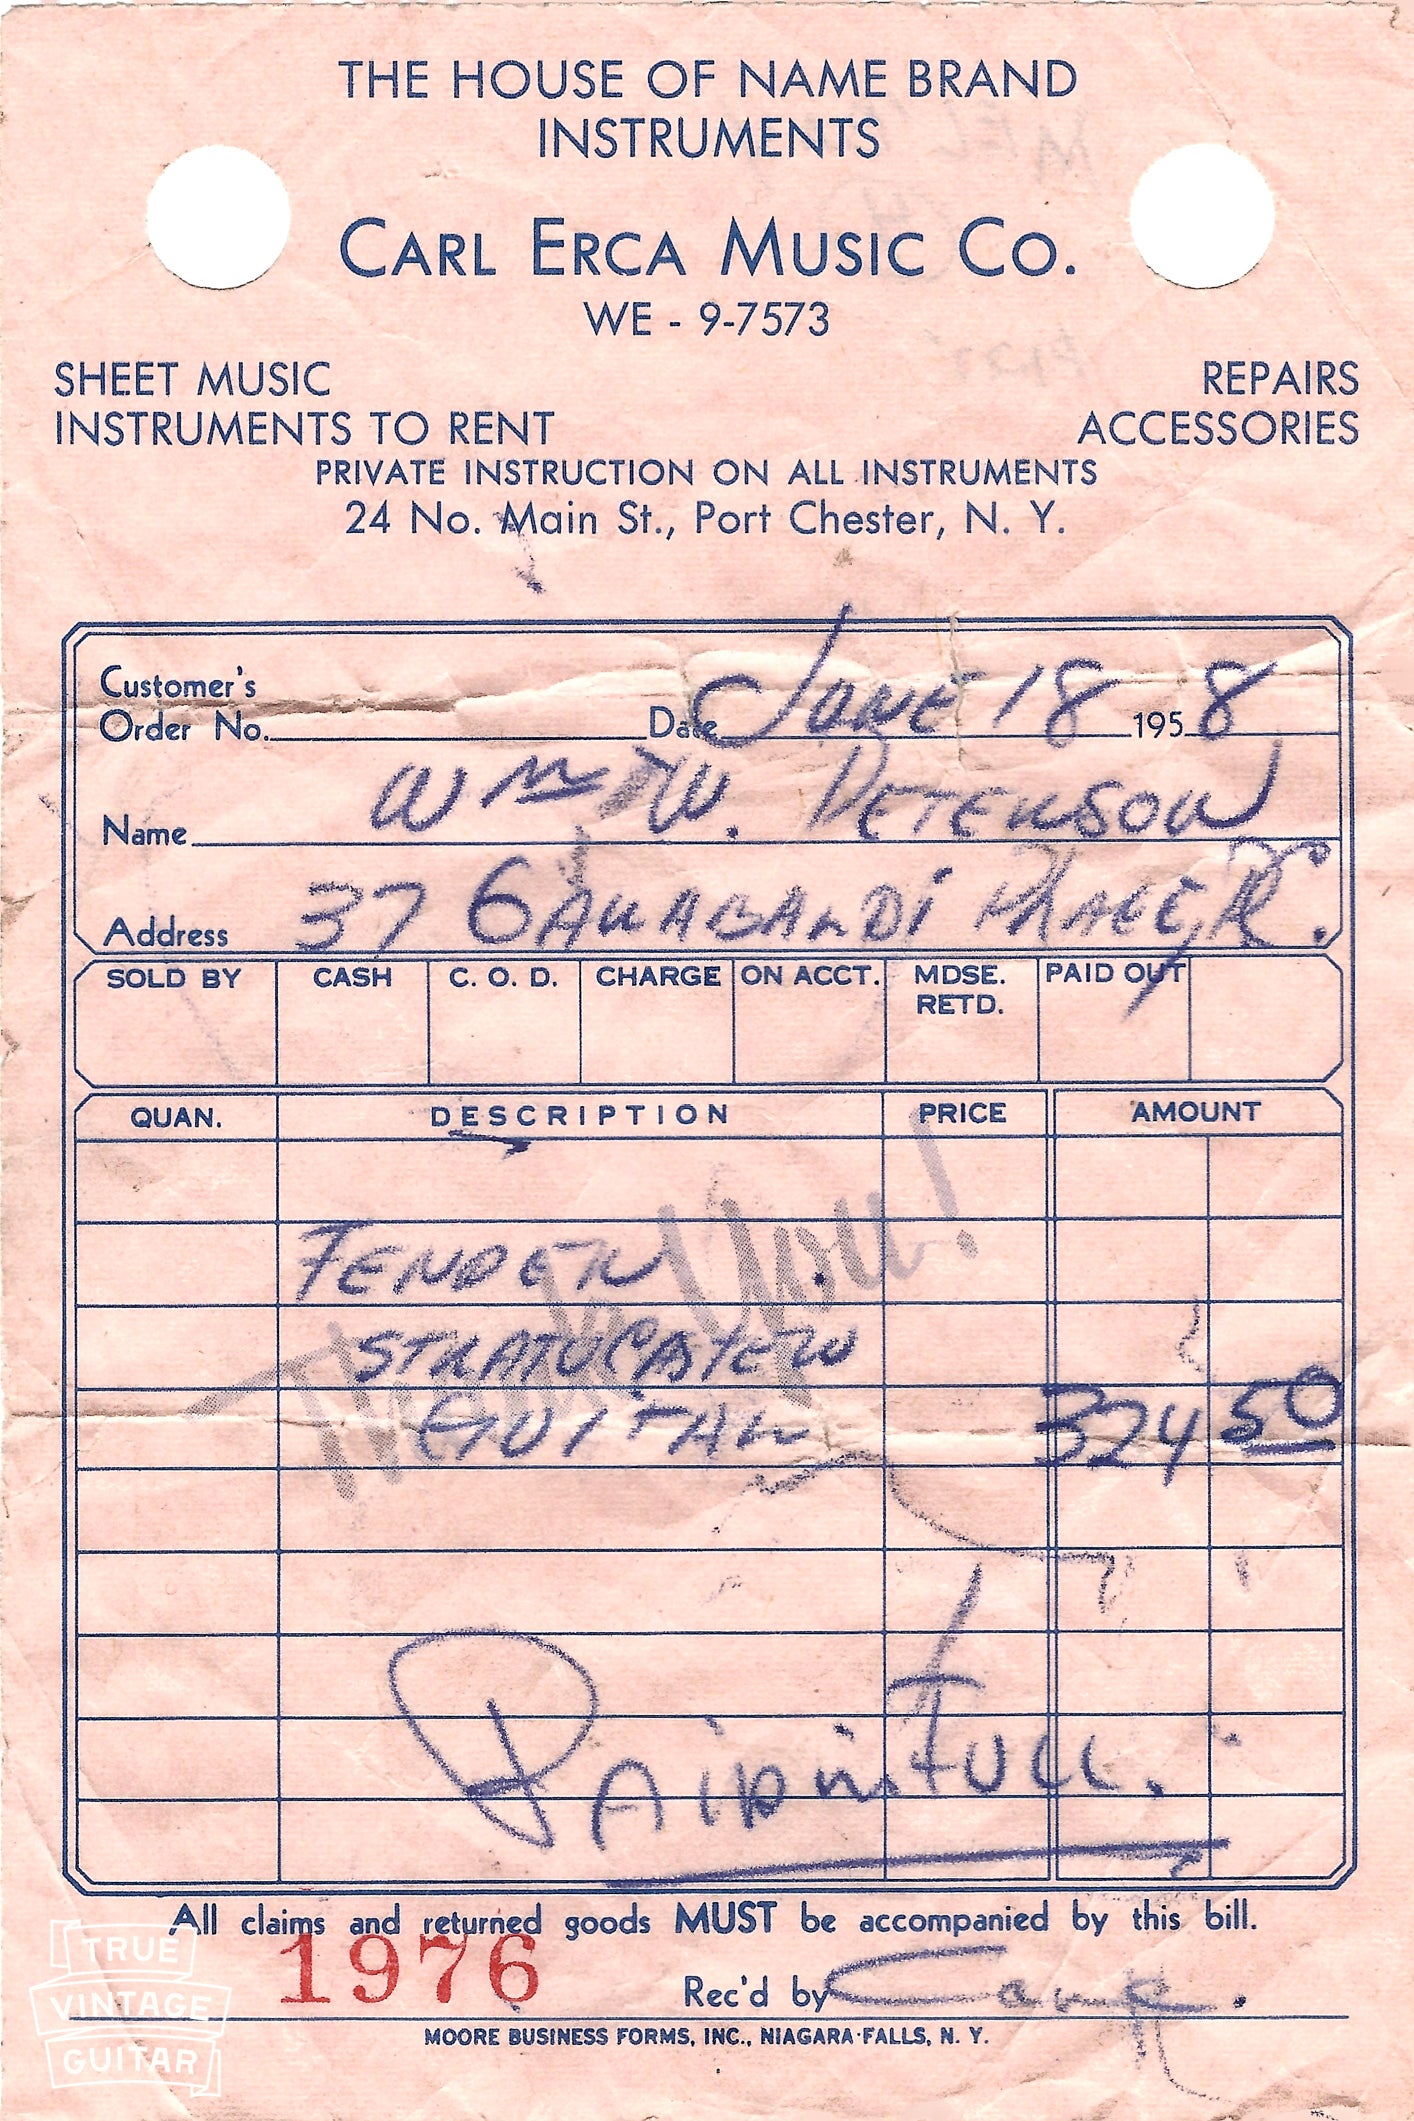 THE HOUSE OF NAME BRAND
INSTRUMENTS
CARL ERCA MUSIC CO.
WE - 9-7573
SHEET MUSIC REPAIRS
INSTRUMENTS TO RENT ACCESSORIES
PRIVATE INSTRUCTION ON ALL INSTRUMENTS
24 No. Main St., Port Chester, N. Y.
Customer's
Order No. Date JUNE 18 1958
Name Wm W. PETERSON
Address 37 GARABALDI PLACE,
SOLD BY CASH C. O. D. CHARGE ON ACCT. MDSE. RETD. PAID OUT
QUAN. DESCRIPTION PRICE AMOUNT
Thank You!
FENDER
STRATOCASTER
GUITAR 324 50
PAID in FULL.
All claims and returned goods MUST be accompanied by this bill.
1976
Rec'd by
MOORE BUSINESS FORMS, INC., NIAGARA FALLS, N. Y.
TRUE
VINTAGE
GUITAR